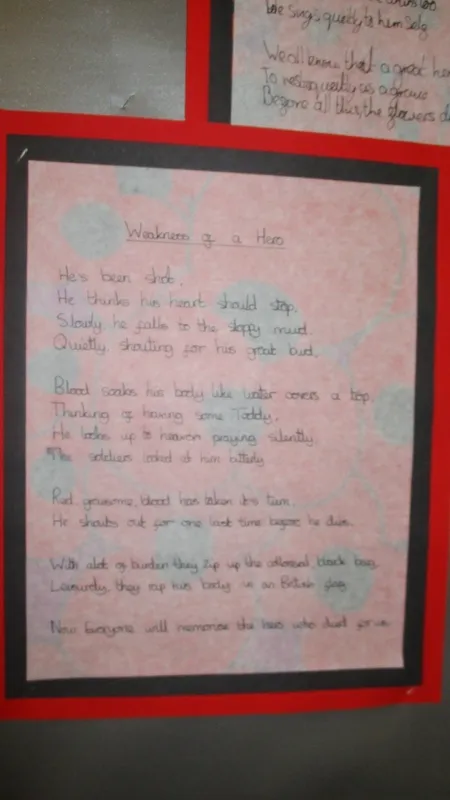 he sings quietly to himself
We all know that a great
To rest quietly as a
Before all this, the flowers
Weakness of a Hero
He's been shot,
He thinks his heart should stop,
Slowly, he falls to the sloppy mud.
Quietly, shouting for his great bud,
Blood soaks his body like water covers a top,
Thinking of having some Toddy,
He looks up to heaven praying silently,
The soldiers looked at him bitterly
Red, gruesome, blood has taken it's turn,
He shouts out for one last time before he dies.
With alot of burden they zip up the colossal black bag,
Leisurely, they rap his body in an British flag
Now Everyone will memorise the hero who died for us